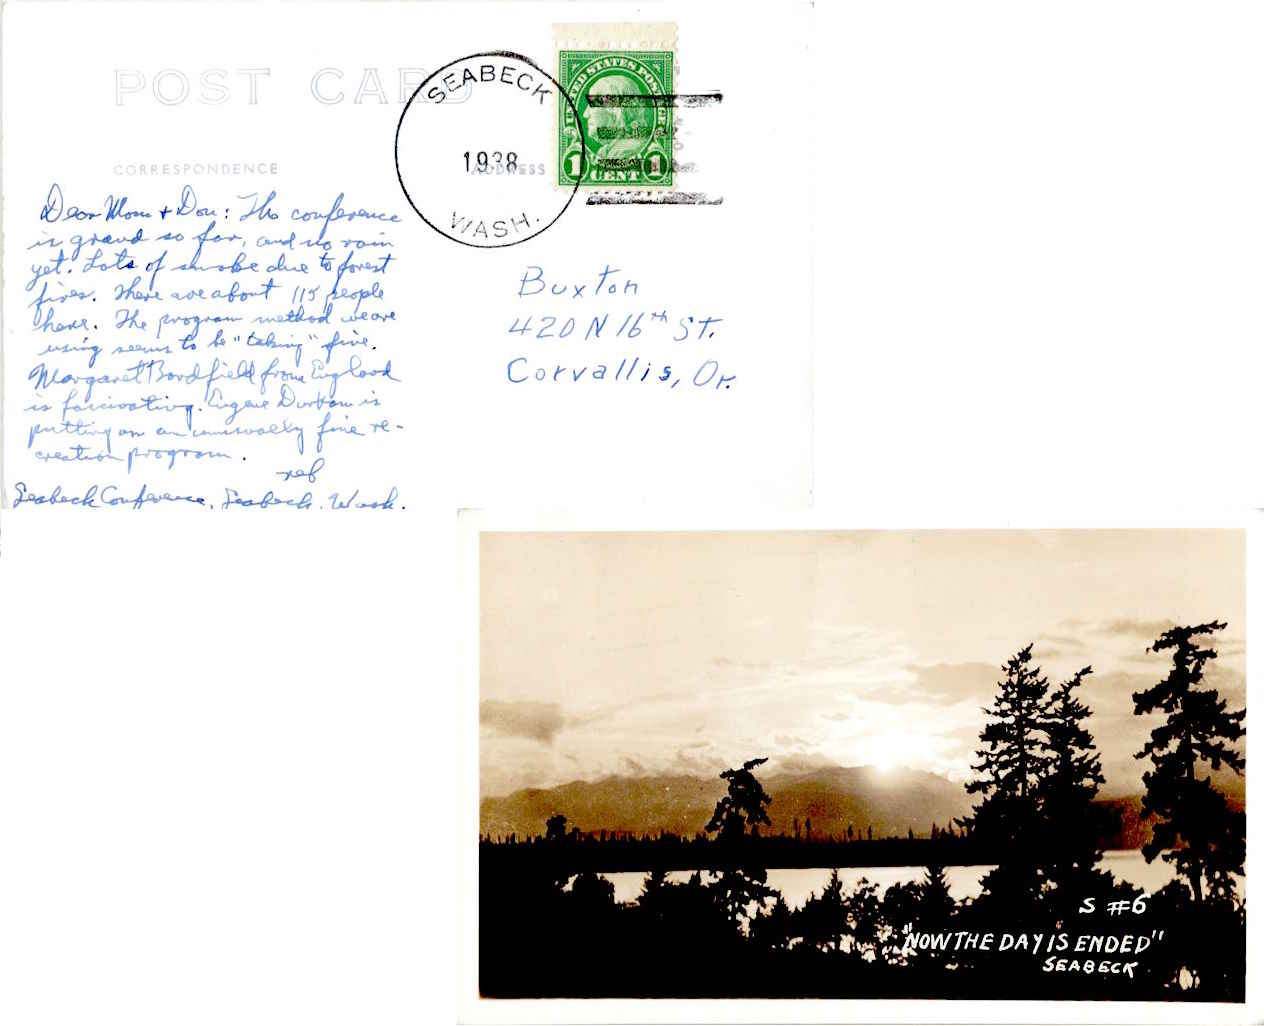 POST CARD
CORRESPONDENCE
ADDRESS
SEABECK
1938
WASH.
UNITED STATES POSTAGE
1 CENT 1
Dear Mom + Don: The conference
is grand so far, and no rain
yet. Lots of smoke due to forest
fires. There are about 115 people
here. The program method we are
using seems to be "taking" fine.
Margaret Bondfield from England
is fascinating. Eugene Durham is
putting on an unusually fine re-
creation program.
reb
Seabeck Conference, Seabeck, Wash.
Buxton
420 N 16th ST.
Corvallis, Or.
S #6
"NOW THE DAY IS ENDED"
SEABECK